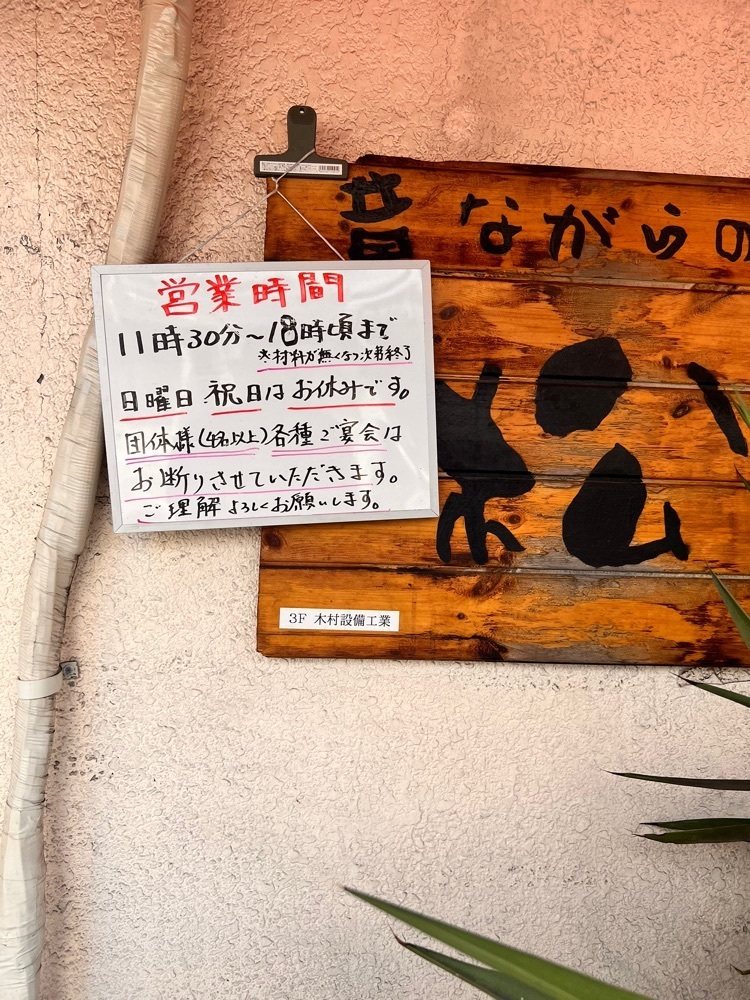 営業時間
11時30分～18時頃まで
※材料が無くなり次第終了
日曜日 祝日は お休みです。
団体様(4名以上)各種ご宴会は
お断りさせていただきます。
ご理解よろしくお願いします。
昔ながらの
松
3F 木村設備工業